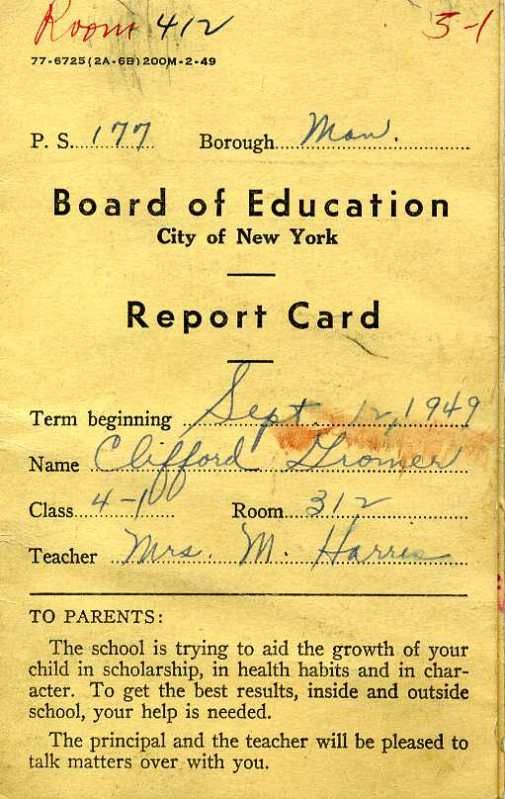 Room 412 5-1
77-6725(2A-6B)200M-2-49
P. S. 177 Borough Man.
Board of Education
City of New York
Report Card
Term beginning Sept. 12, 1949
Name Clifford Gromer
Class 4-1 Room 312
Teacher Mrs. M. Harris
TO PARENTS:
The school is trying to aid the growth of your
child in scholarship, in health habits and in char-
acter. To get the best results, inside and outside
school, your help is needed.
The principal and the teacher will be pleased to
talk matters over with you.